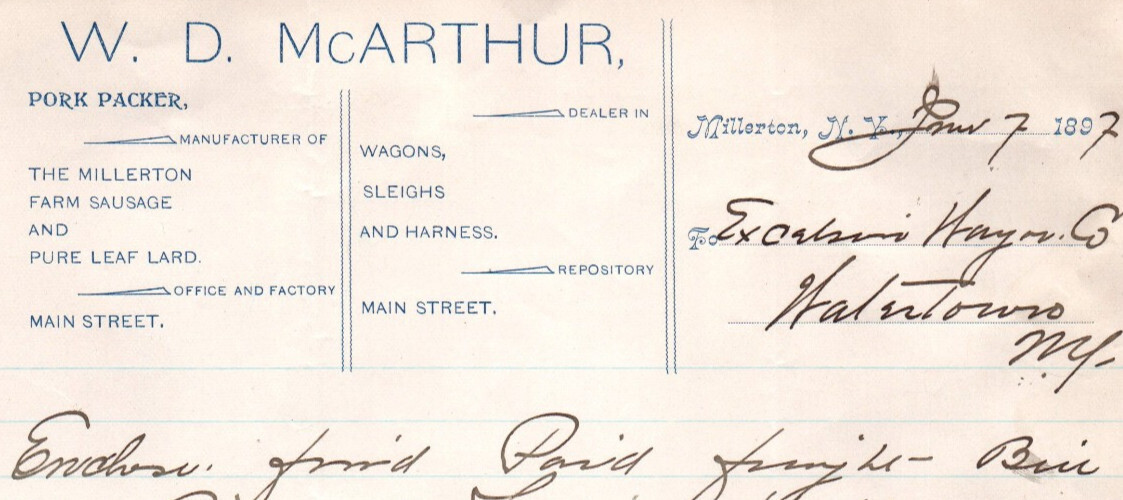 W. D. McARTHUR,
PORK PACKER,
MANUFACTURER OF
THE MILLERTON
FARM SAUSAGE
AND
PURE LEAF LARD.
OFFICE AND FACTORY
MAIN STREET.
DEALER IN
WAGONS,
SLEIGHS
AND HARNESS.
REPOSITORY
MAIN STREET.
Millerton, N. Y., 7 1897
To Excelsior Wagon Co
Watertown
NY.
Enclose find Paid freight Bill